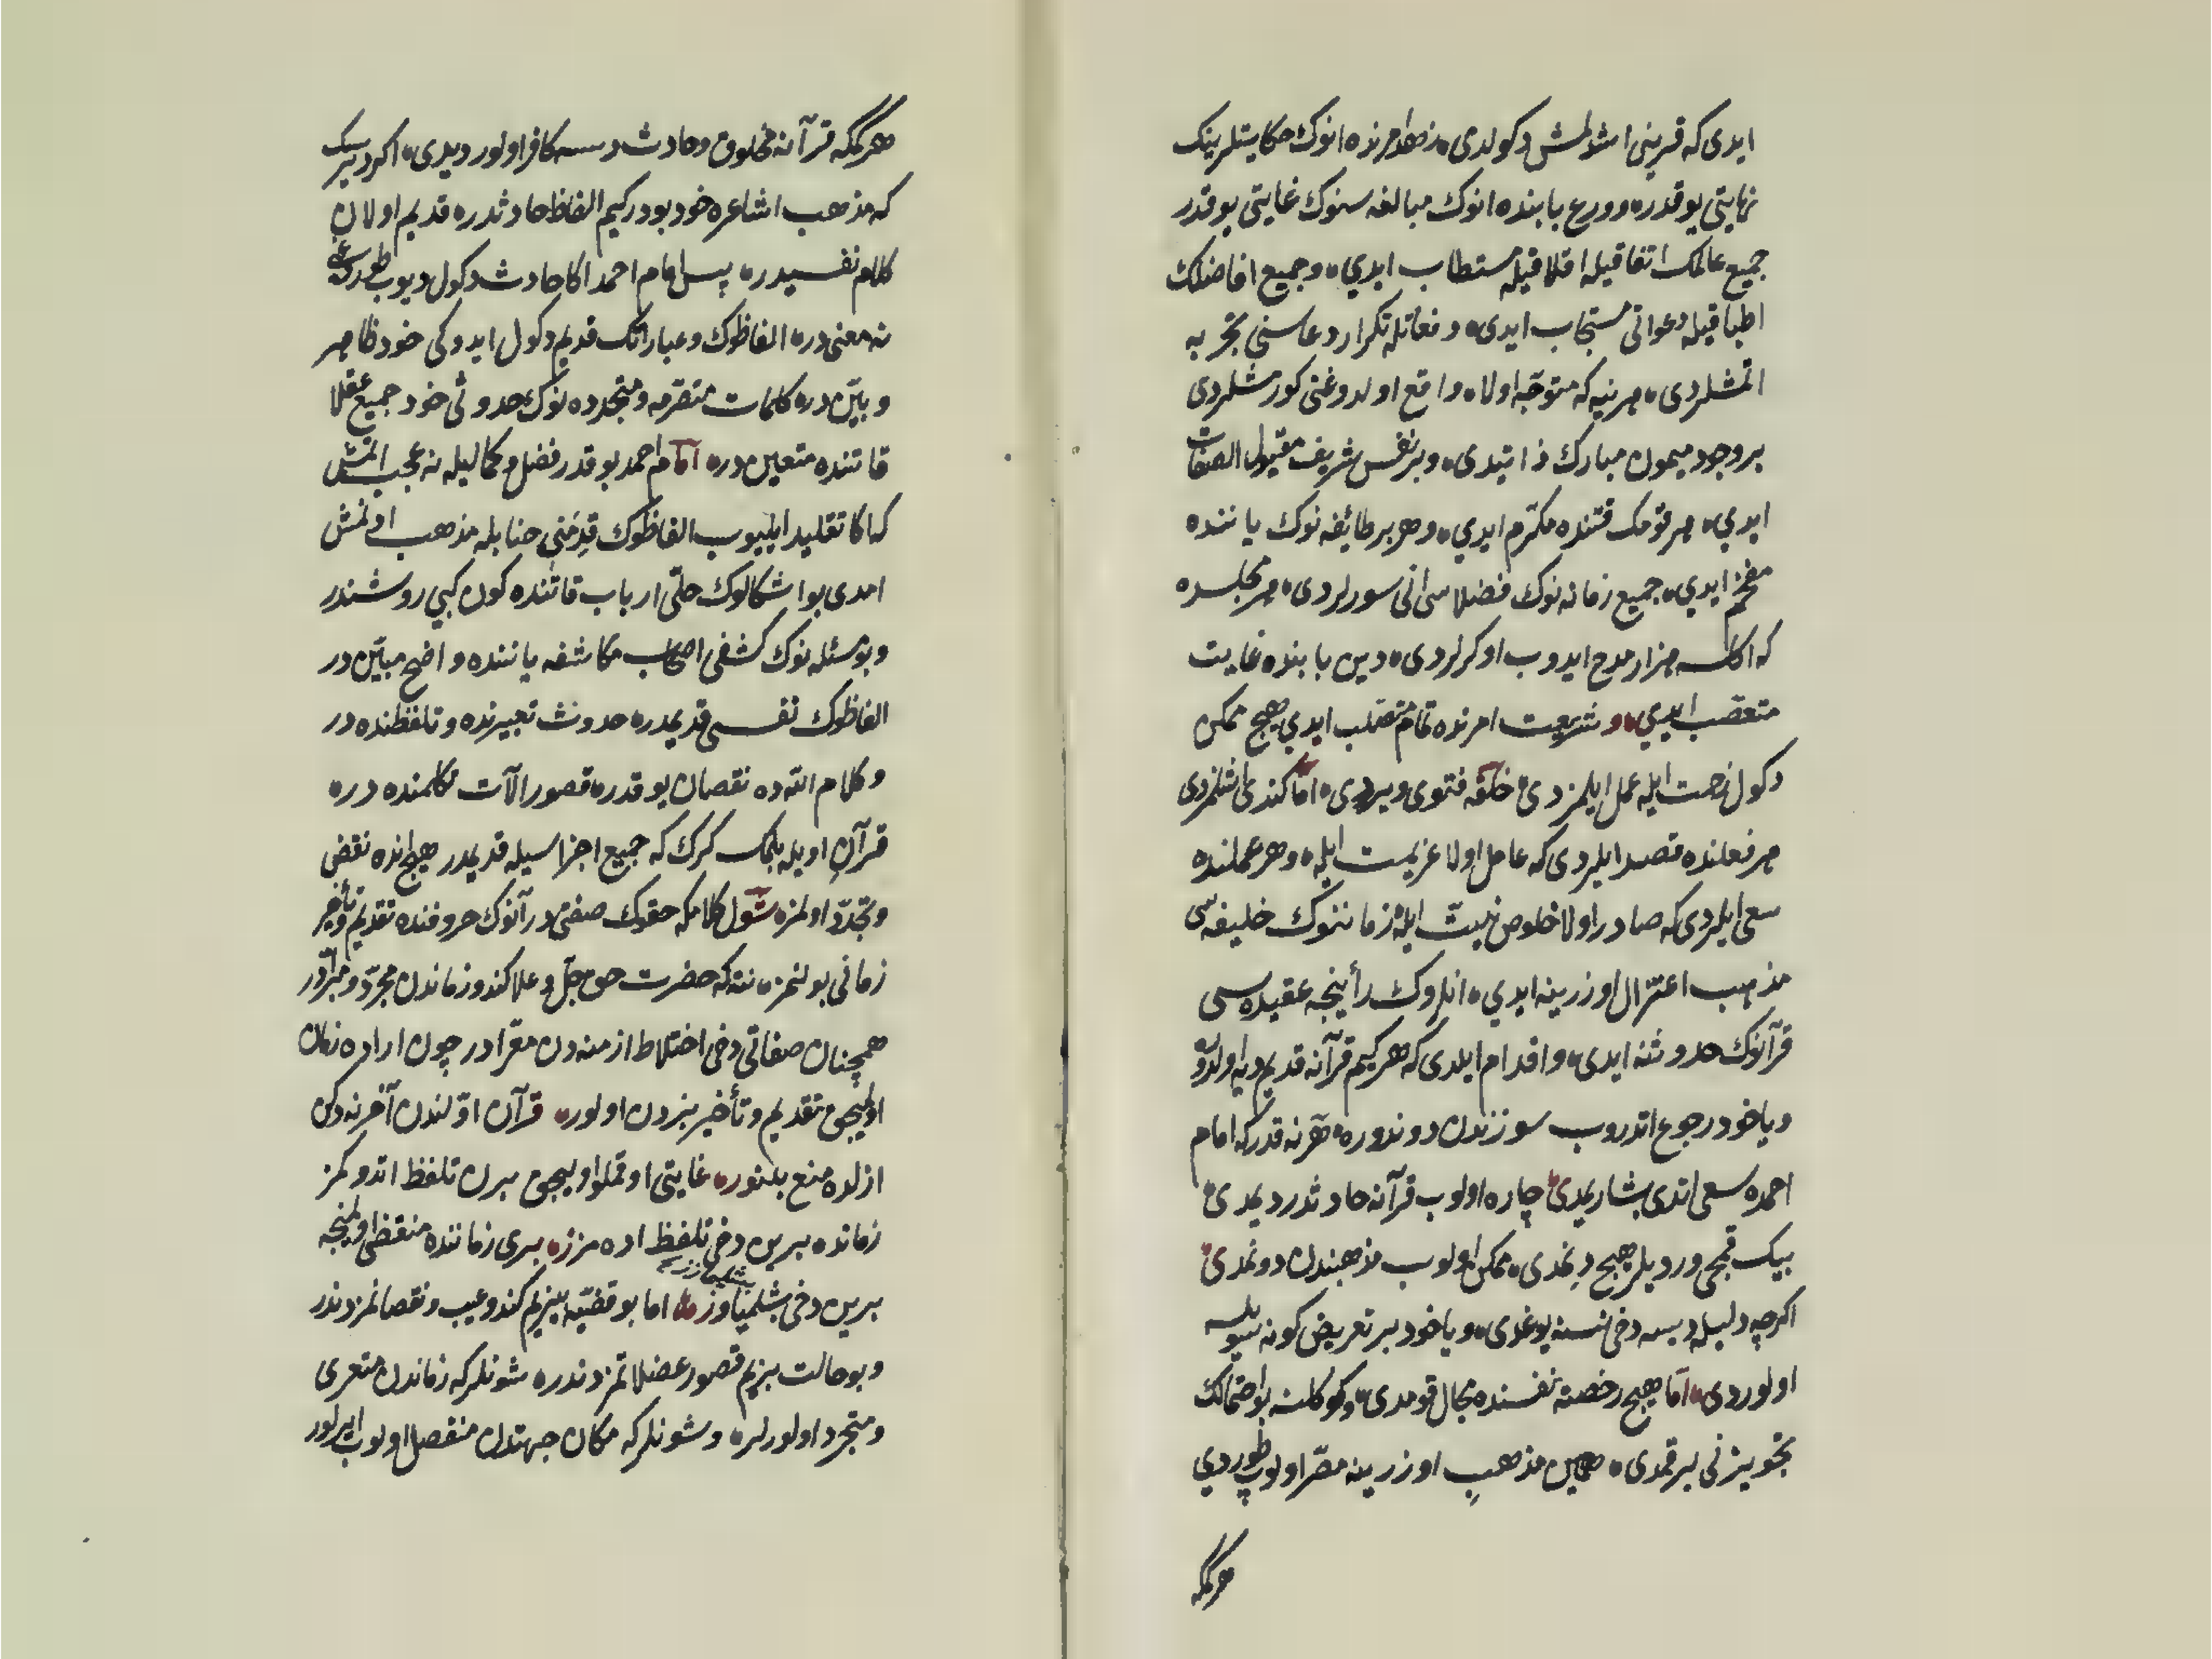 ایدی که قرینی اشدلمش دکولدی زهد امرنده انوک حکایتلرینک
نهایتی یوقدر و ورع بابنده انوک مبالغه سنوک غایتی یوقدر
جمیع عالمک اتفاقیله اقلاقیله مستطاب ایدی و جمیع افاضلک
اطباقیله دعواتی مستجاب ایدی دفعاتله تکرار دعاسنی تجربه
اتمشلردی هر نیه که متوجه اولا واقع اولدوغنی کورمشلردی
بر وجود میمون مبارک ذاتیدی و بر نفس شریف مقبول الصفات
ایدی هر قومک قتنده مکرم ایدی و هر بر طائفه نوک یاننده
مفخم ایدی جمیع زمانه نوک فضلاسی انی سورلردی هر مجلسده
که اکلسه هزار مدح ایدوب اوکرلردی دین بابنده غایت
متعصب ایدی و شریعت امرنده تمام متصلب ایدی هیچ ممکن
دکول رخصت ایله عمل ایلمزدی خلقه فتوی ویردی اما کندی اشلمزدی
هر فعلنده قصد ایلردی که عامل اولا عزیمت ایله و هر عملنده
سعی ایلردی که صادر اولا خلوص نیت ایله زماننوک خلیفه سی
مذهب اعتزال اوزرینه ایدی انلروک رأینجه عقیده سی
قرآنوک حدوثنه ایدی و اقدام ایلدی که هر کیم قرآنه قدیم دیه اولدوره
و یاخود رجوع اتدروب سوزندن دوندوره هر نه قدر که امام
احمده سعی اتدی بشاریمدی چاره اولوب قرآنه حادثدر دیمدی
بیک قمچی وردیلر هیچ دنمدی ممکن اولوب مذهبندن دونمدی
اکرچه دلیله دیسه دخی نسنه یوغدی و یاخود بر تعریض کونه سویلسه
اولوردی اما هیچ رخصته نفسنده مجال قومدی و کوکلنه بو احتمالک
تجویزنی بیرقمدی همین مذهب اوزرینه مصر اولوب طوردی
هر کمکه
هر کمکه قرآنه مخلوق و حادث دسه کافر اولور دیدی اکر دیرسک
که مذهب اشاعره خود بودر کیم الفاظ حادثدر قدیم اولان
کلام نفسیدر پس امام احمد اکا حادث دکول دیوب طوردوغی
نه معنی در الفاظوک و عباراتک قدیم دکول ایدوکی خود ظاهر
و بین در کلمات متصرمه و متجدده نوک حدوثی خود جمیع عقلا
قاتنده متعین در اما امام احمد بو قدر فضل و کمالیله نه عجب اتمش
که اکا تقلید ایلیوب الفاظوک قدمنی حنابله مذهب اونمش
امدی بو اشکالوک حلی ارباب قاتنده کون کبی روشندر
و بو مسئله نوک کشفی اصحاب مکاشفه یاننده واضح مبین در
الفاظوک نفسی قدیمدر حدوث تعبیرنده و تلفظنده در
و کلام الله ده نقصان یوقدر قصور آلات تکلمنده در
قرآن اویله بلمک کرک که جمیع اجزاسیله قدیمدر هیچ انده نقض
و تجدد اولمز شول کلامکه حقوک صفتی در آنوک حروفنده تقدیم و تأخیر
زمانی بولنمز نته که حضرت حق جل و علا کندو زماندن مجرد و مبرادر
همچنان صفاتی دخی اختلاط ازمنه دن معرادر چون اراده زمان
اولمیجق تقدیم و تأخیر نردن اولور قرآن اولندن آخرنه دکن
ازلده منع بلنور غایتی اوقملو اولیجق برن تلفظ اتدوکمز
زمانده برین دخی تلفظ اده مزز بری زماننده منقضی اولمنجه
برین دخی بشلمیاوز اما بو قضیه بیزم کندو عیب و نقصانمزدندر
و بو حالت بیزم قصور عضلاتمزدندر شونلر که زماندن متعری
و متجرد اولورلر و شونلر که مکان جهتدن منفصل اولوب ایرلور